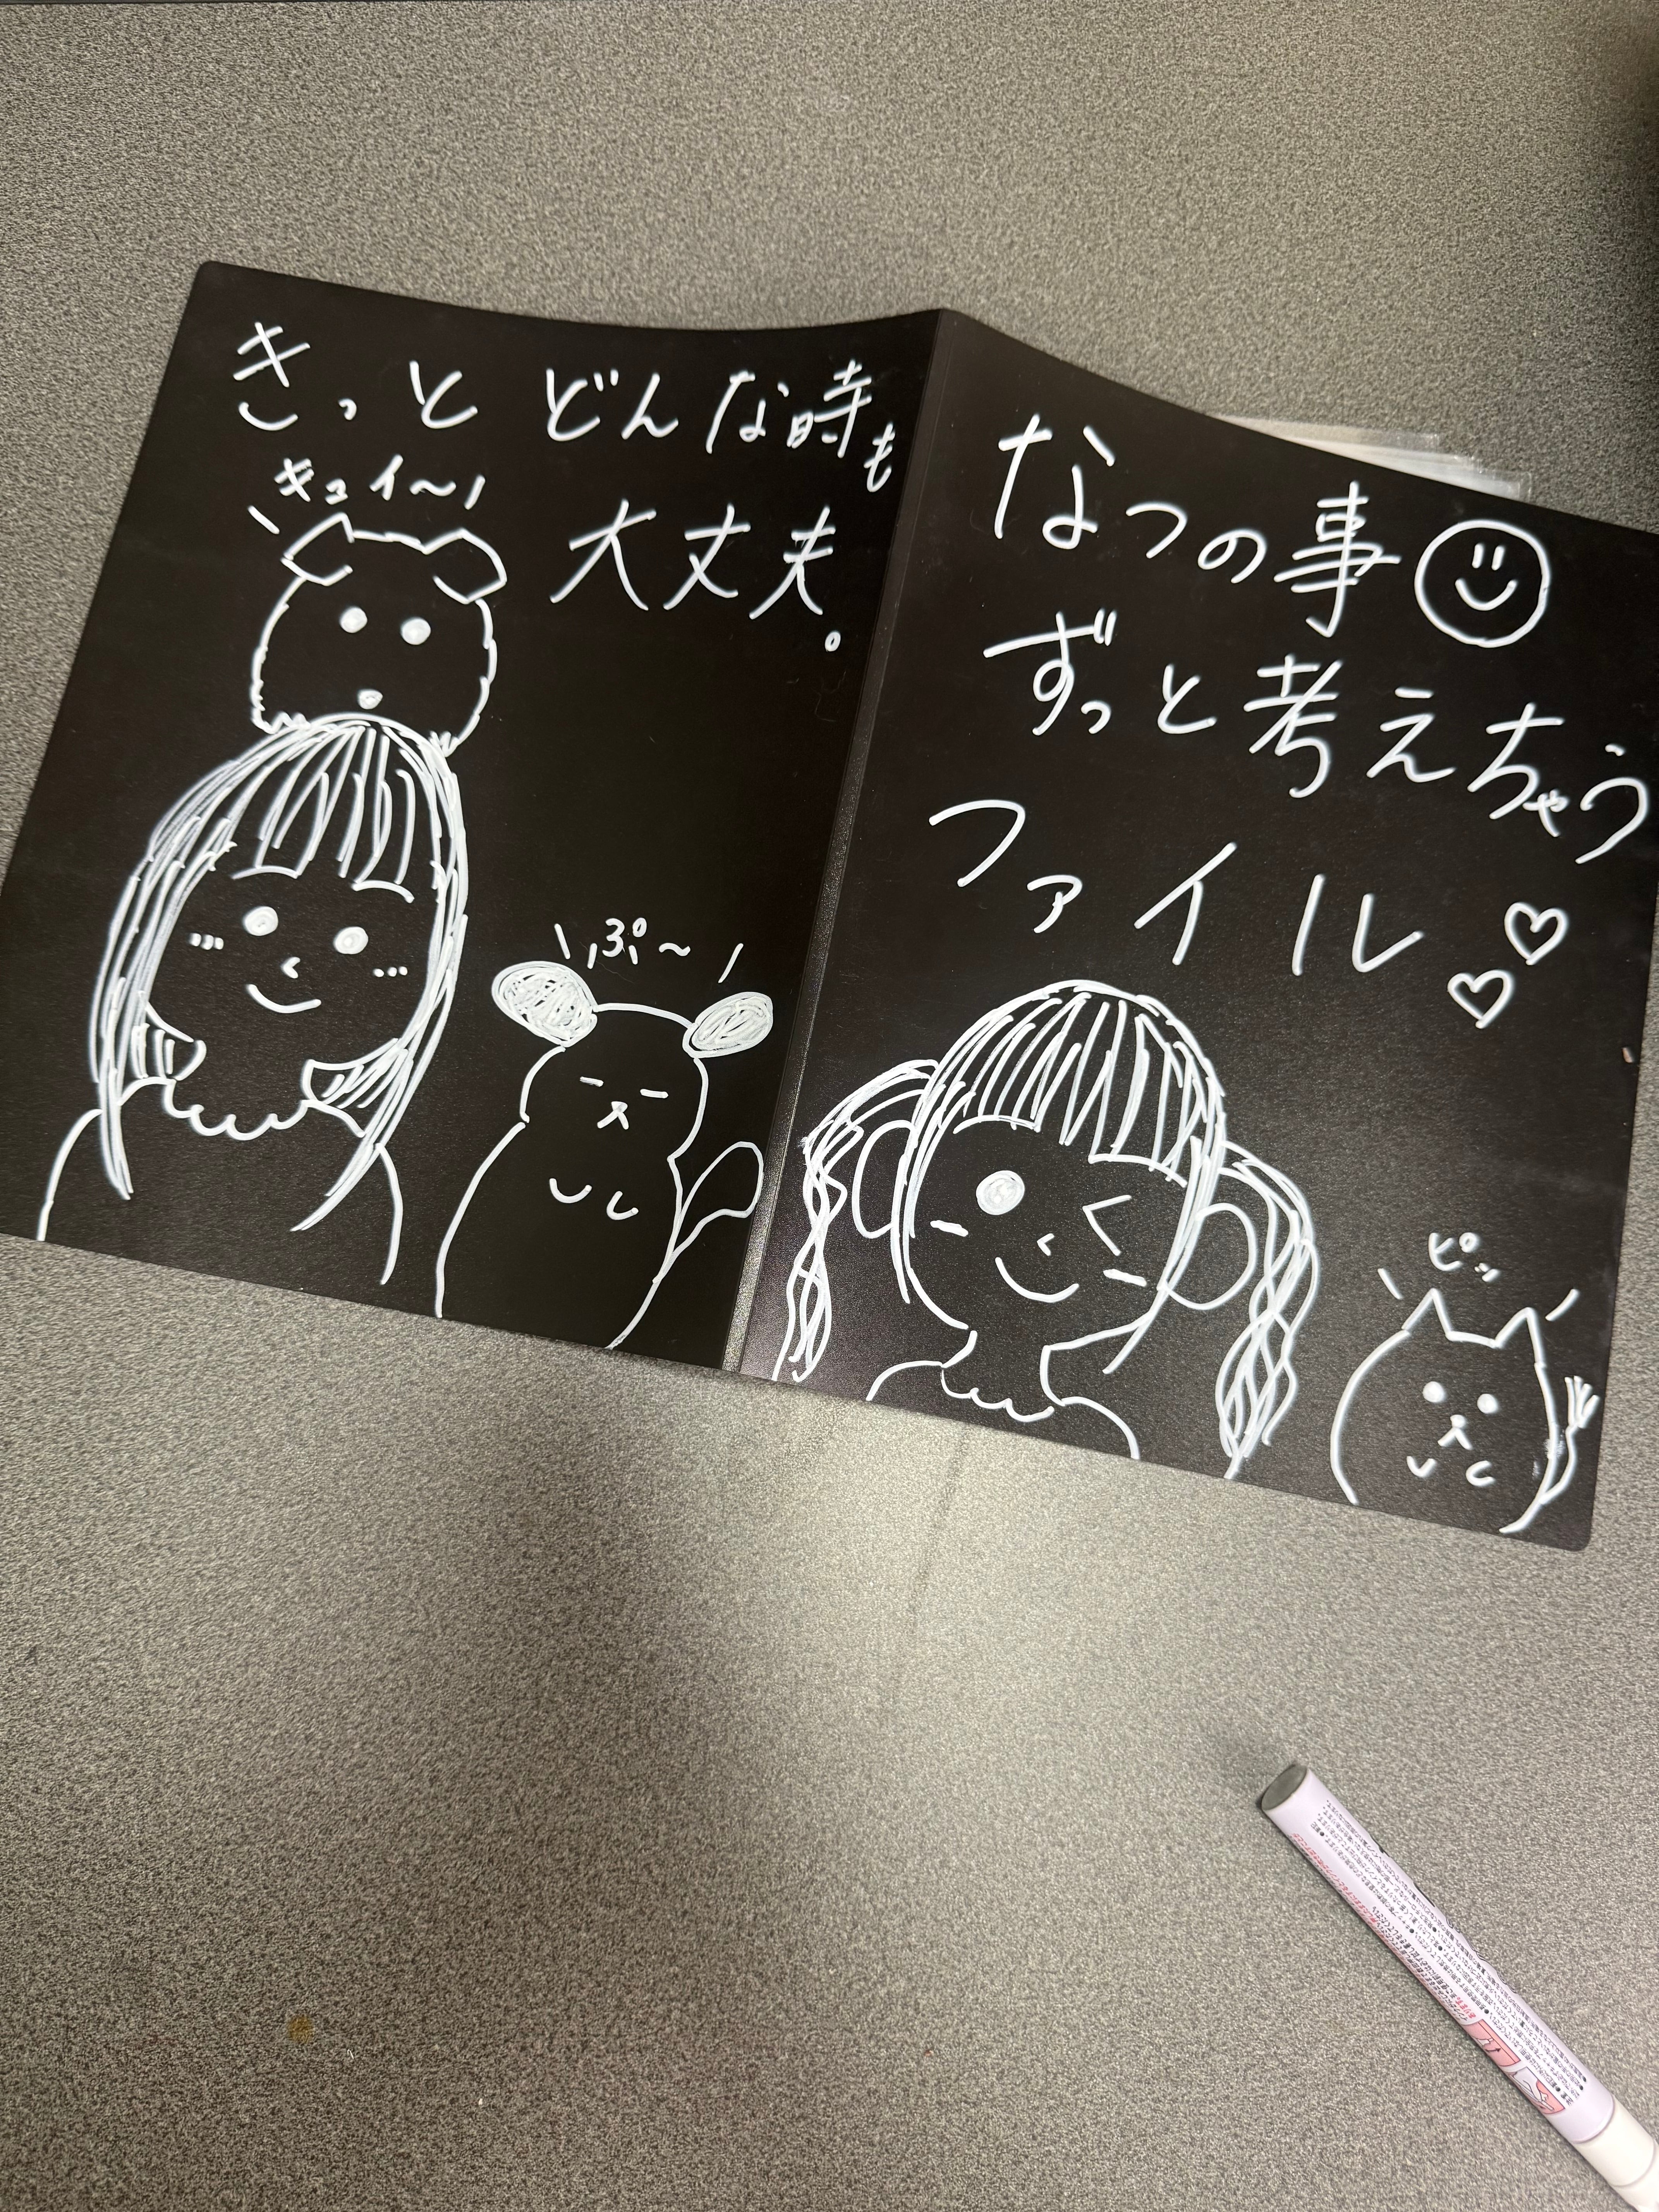 きっと どんな時も
大丈夫。
キュイ〜
ぷ〜
なつの事
ずっと考えちゃう
ファイル♡♡
ピッ